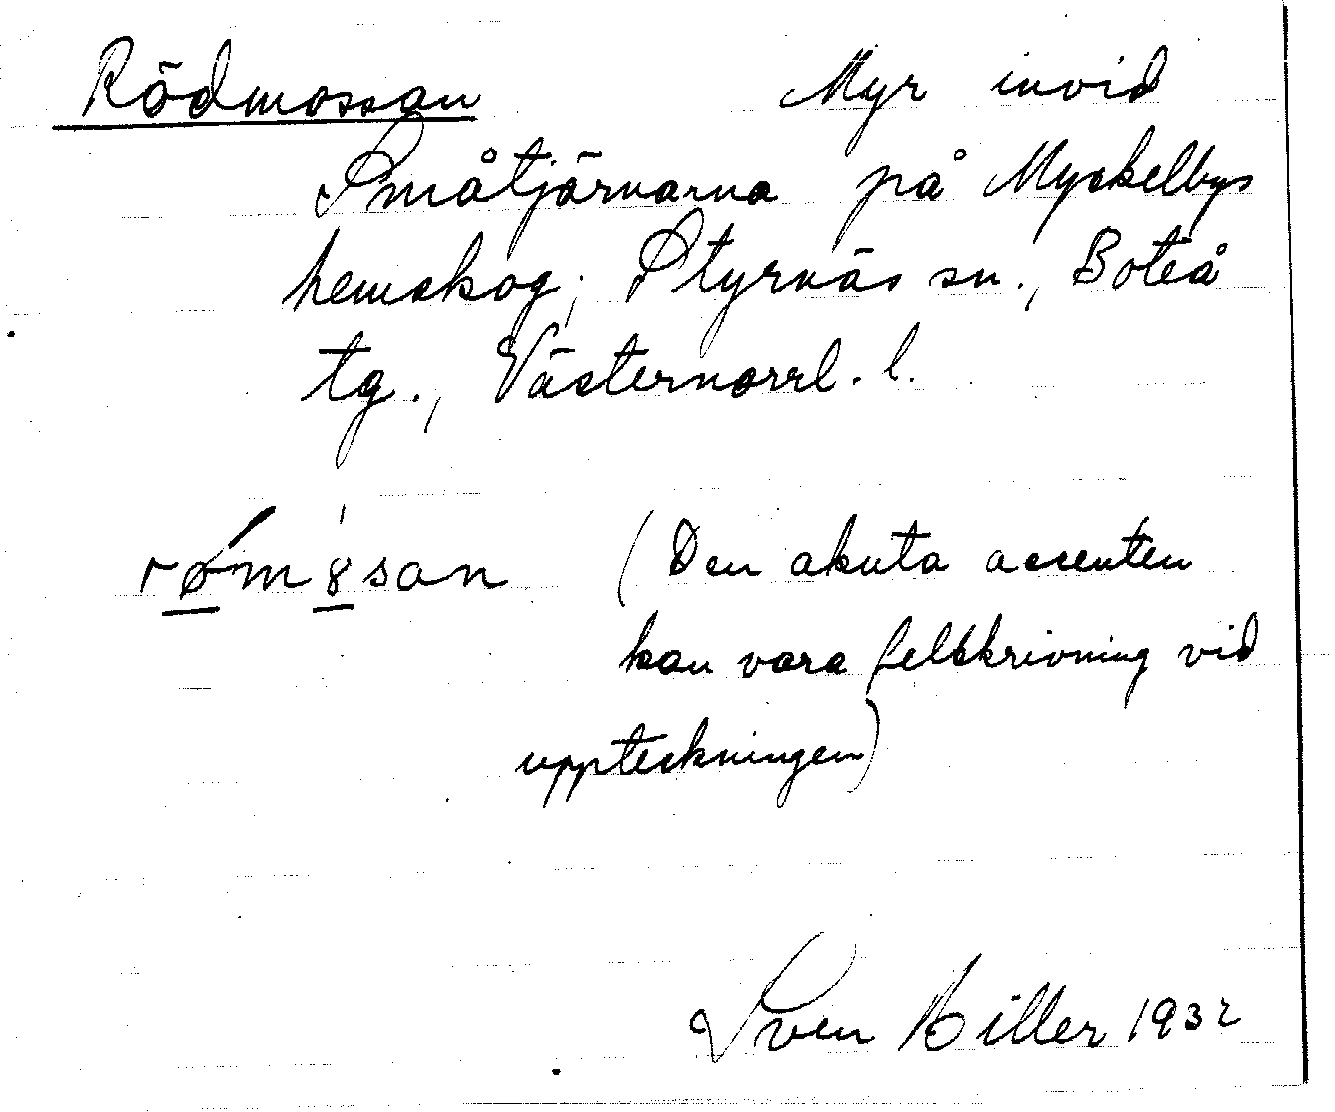 Rödmossan Myr invid
Småtjärnarna på Myckelbys
hemskog, Styrnäs sn., Boteå
tg., Västernorrl. l.
rømȣsan (Den akuta accenten
kan vara felskrivning vid
uppteckningen)
Sven Hiller 1932